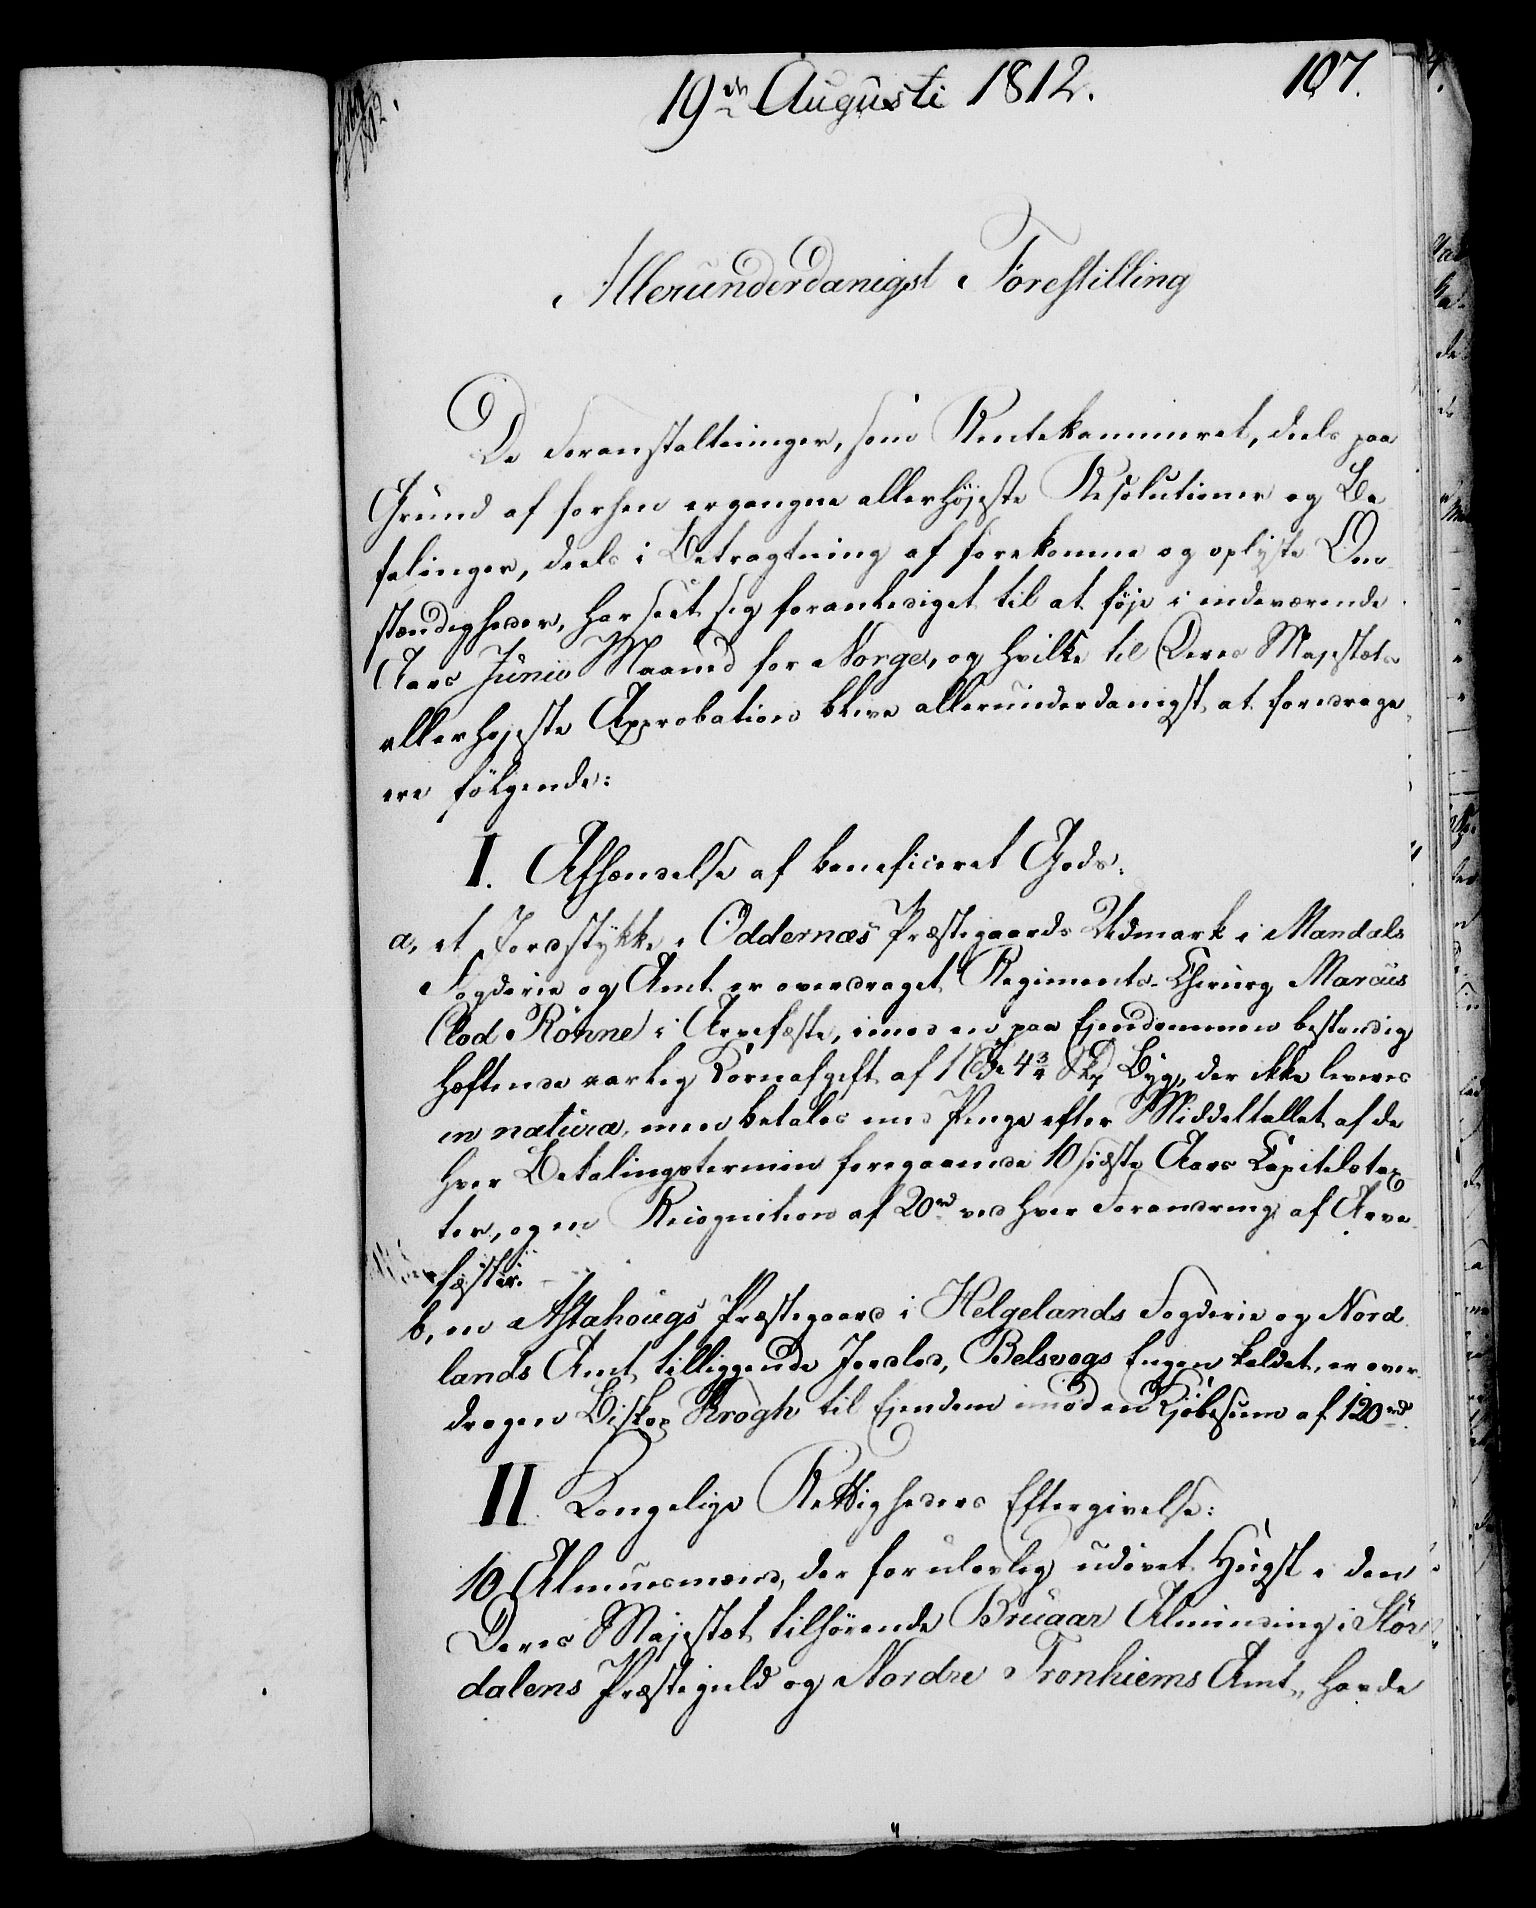 19de Augusti 1812.
107.
Allerunderdanigst Forestilling
De Foranstaltninger, som Rentekammeret, deels paa
Grund af forhen ergangne allerhöjeste Resolutioner og Be-
falinger, deels i Betragtning af forekomne og oplyste Om-
stændigheder, har seet sig foranlediget til at föje i indeværende
Aars Junii Maaned for Norge, og hvilke til Deres Majestæts
allerhøjeste Approbation blive allerunderdanigst at foredrage,
ere følgende:
I. Afhændelse af beneficeret Gods.
a, et Jordstykke i Oddernæs Præstegaards Udmark i Mandals
Fogderie og Amt er overdraget Regiments-Chirurg Marcus
Clod Rönne i Arvefæste, imod en paa Ejendommen bestandig
hæftende aarlig Kornafgift af 1 Tde 4 3/4 Skp Byg, der ikke leveres
in natura, men betales med Penge efter Middeltallet af de
hver Betalingstermin foregaaende 10 sidste Aars Capitelstax-
ter, og en Recognition af 20 rd ved hver Forandring af Arve-
fæster.
b, en Alstahougs Præstegaard i Helgelands Fogderie og Nord-
lands Amt tilliggende Jordlod, Belsvogs Engen kaldet, er over-
dragen Biskop Krogh til Ejendom imod en Kjöbesum af 120 rd.
II. Kongelige Rettigheders Eftergivelse:
10 Almuesmænd, der for ulovlig udövet Hugst i den
Deres Majestæt tilhörende Bruaar Alminding i Stör-
dalens Præstegield og Nordre Tronhiems Amt, havde